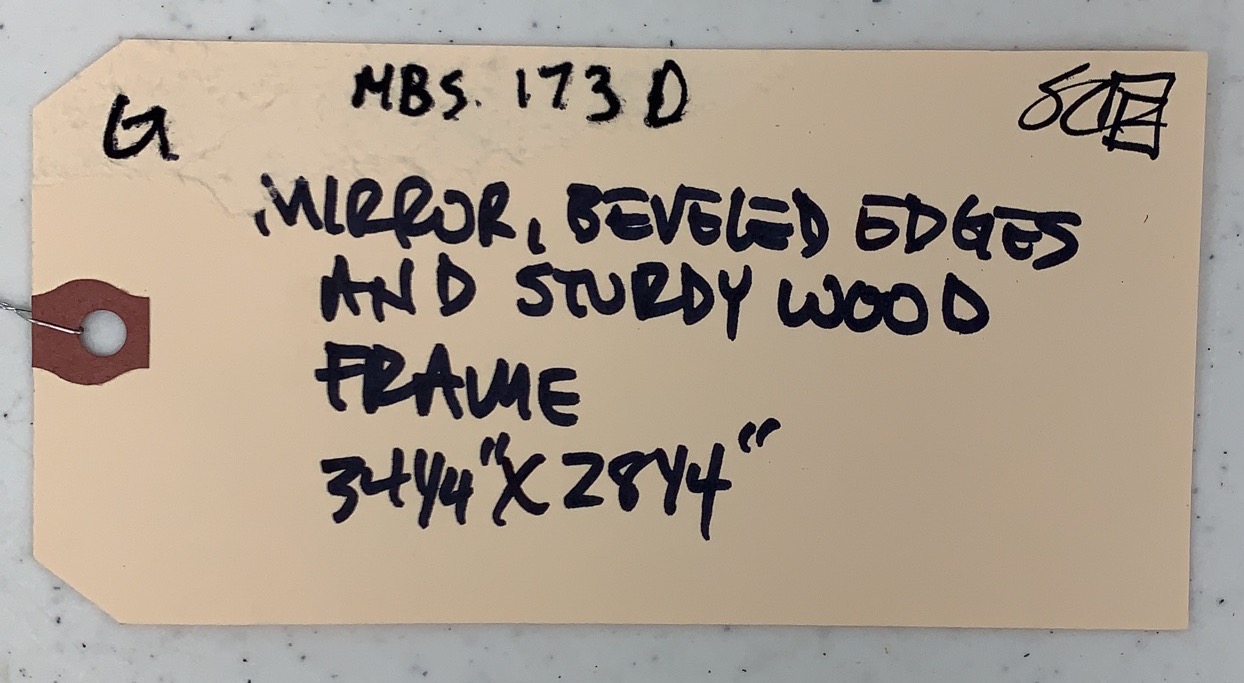 G
MBS. 173 D
MIRROR, BEVELED EDGES
AND STURDY WOOD
FRAME
34 1/4" X 28 1/4"